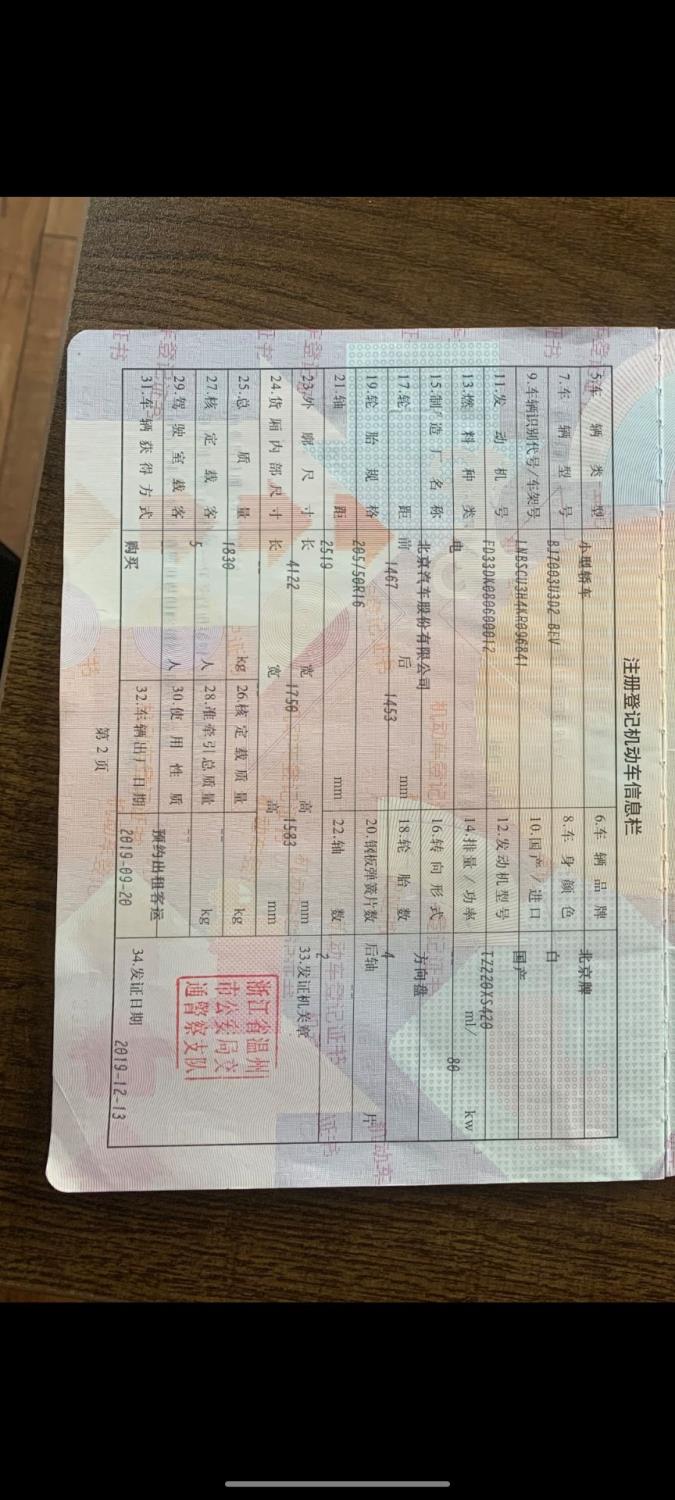 注册登记机动车信息栏
5.车辆类型 小型轿车 6.车辆品牌 北京牌
7.车辆型号 BJ7003U3D2-BEV 8.车身颜色 白
9.车辆识别代号/车架号 LNBSCU3H4KR096841 10.国产/进口 国产
11.发动机号 FD33DK080600012 12.发动机型号 TZ220XS420
13.燃料种类 电 14.排量/功率 ml/ 80 kw
15.制造厂名称 北京汽车股份有限公司 16.转向形式 方向盘
17.轮距 前 1467 后 1453 mm 18.轮胎数 4
19.轮胎规格 205/50R16 20.钢板弹簧片数 后轴 片
21.轴距 2519 mm 22.轴数 2
23.外廓尺寸 长 4122 宽 1750 高 1583 mm 33.发证机关章
24.货厢内部尺寸 长 宽 高 mm
25.总质量 1830 kg 26.核定载质量 kg
27.核定载客 5 人 28.准牵引总质量 kg
29.驾驶室载客 人 30.使用性质 预约出租客运
浙江省温州
市公安局交
通警察支队
31.车辆获得方式 购买 32.车辆出厂日期 2019-09-20 34.发证日期 2019-12-13
第2页